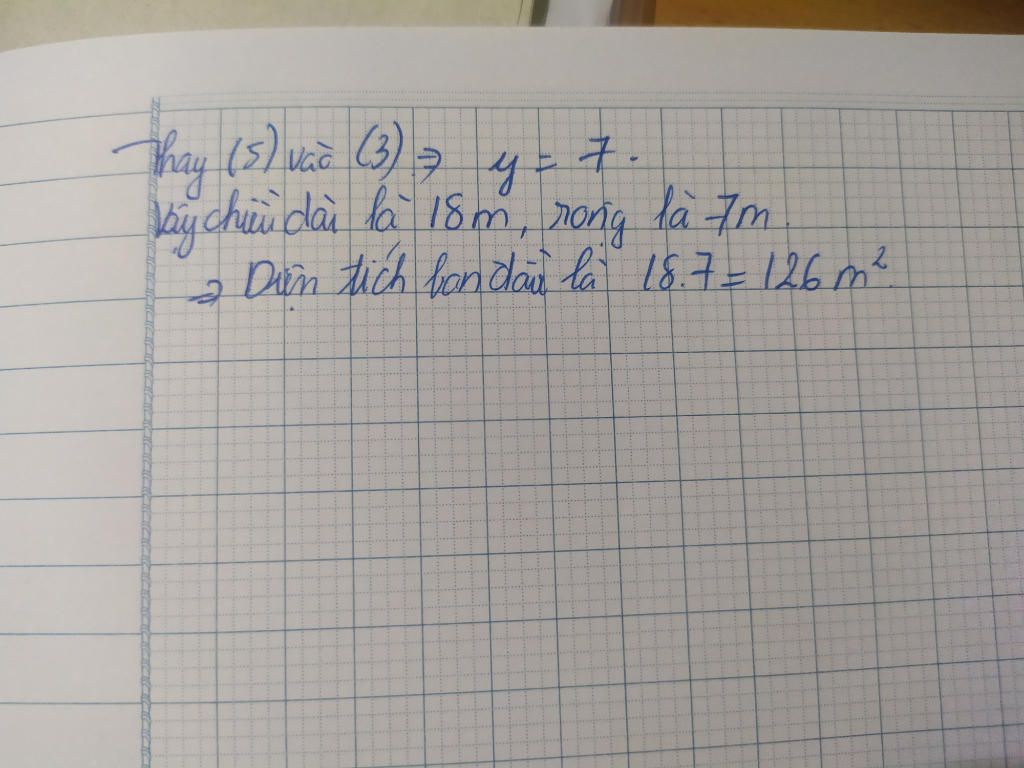 Thay (5) vào (3) => y = 7.
Vậy chiều dài là 18m, rộng là 7m.
=> Diện tích ban đầu là 18.7 = 126 m²